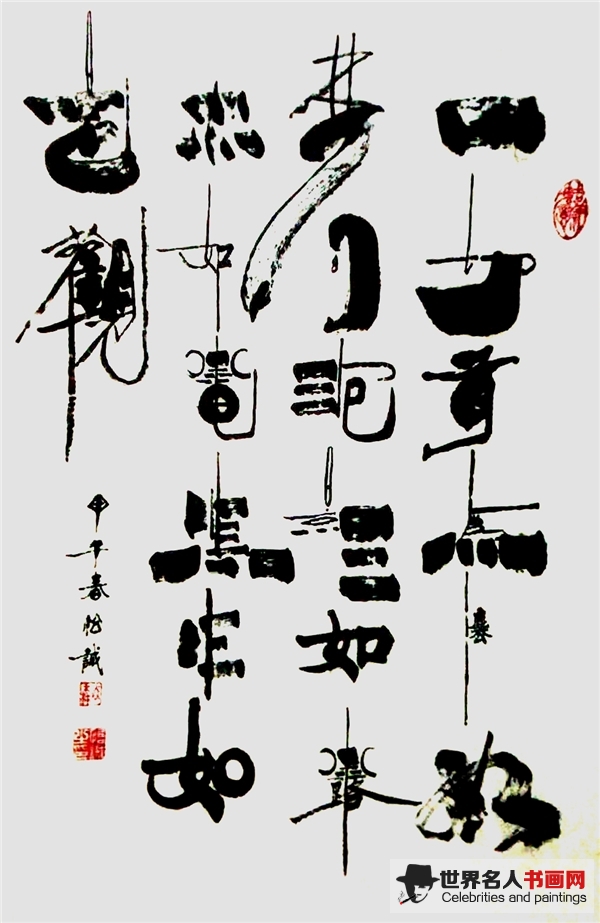 一切有為法如
梦幻泡影如露
亦如電應作如
是觀
甲午春怡誠
世界名人书画网
Celebrities and paintings